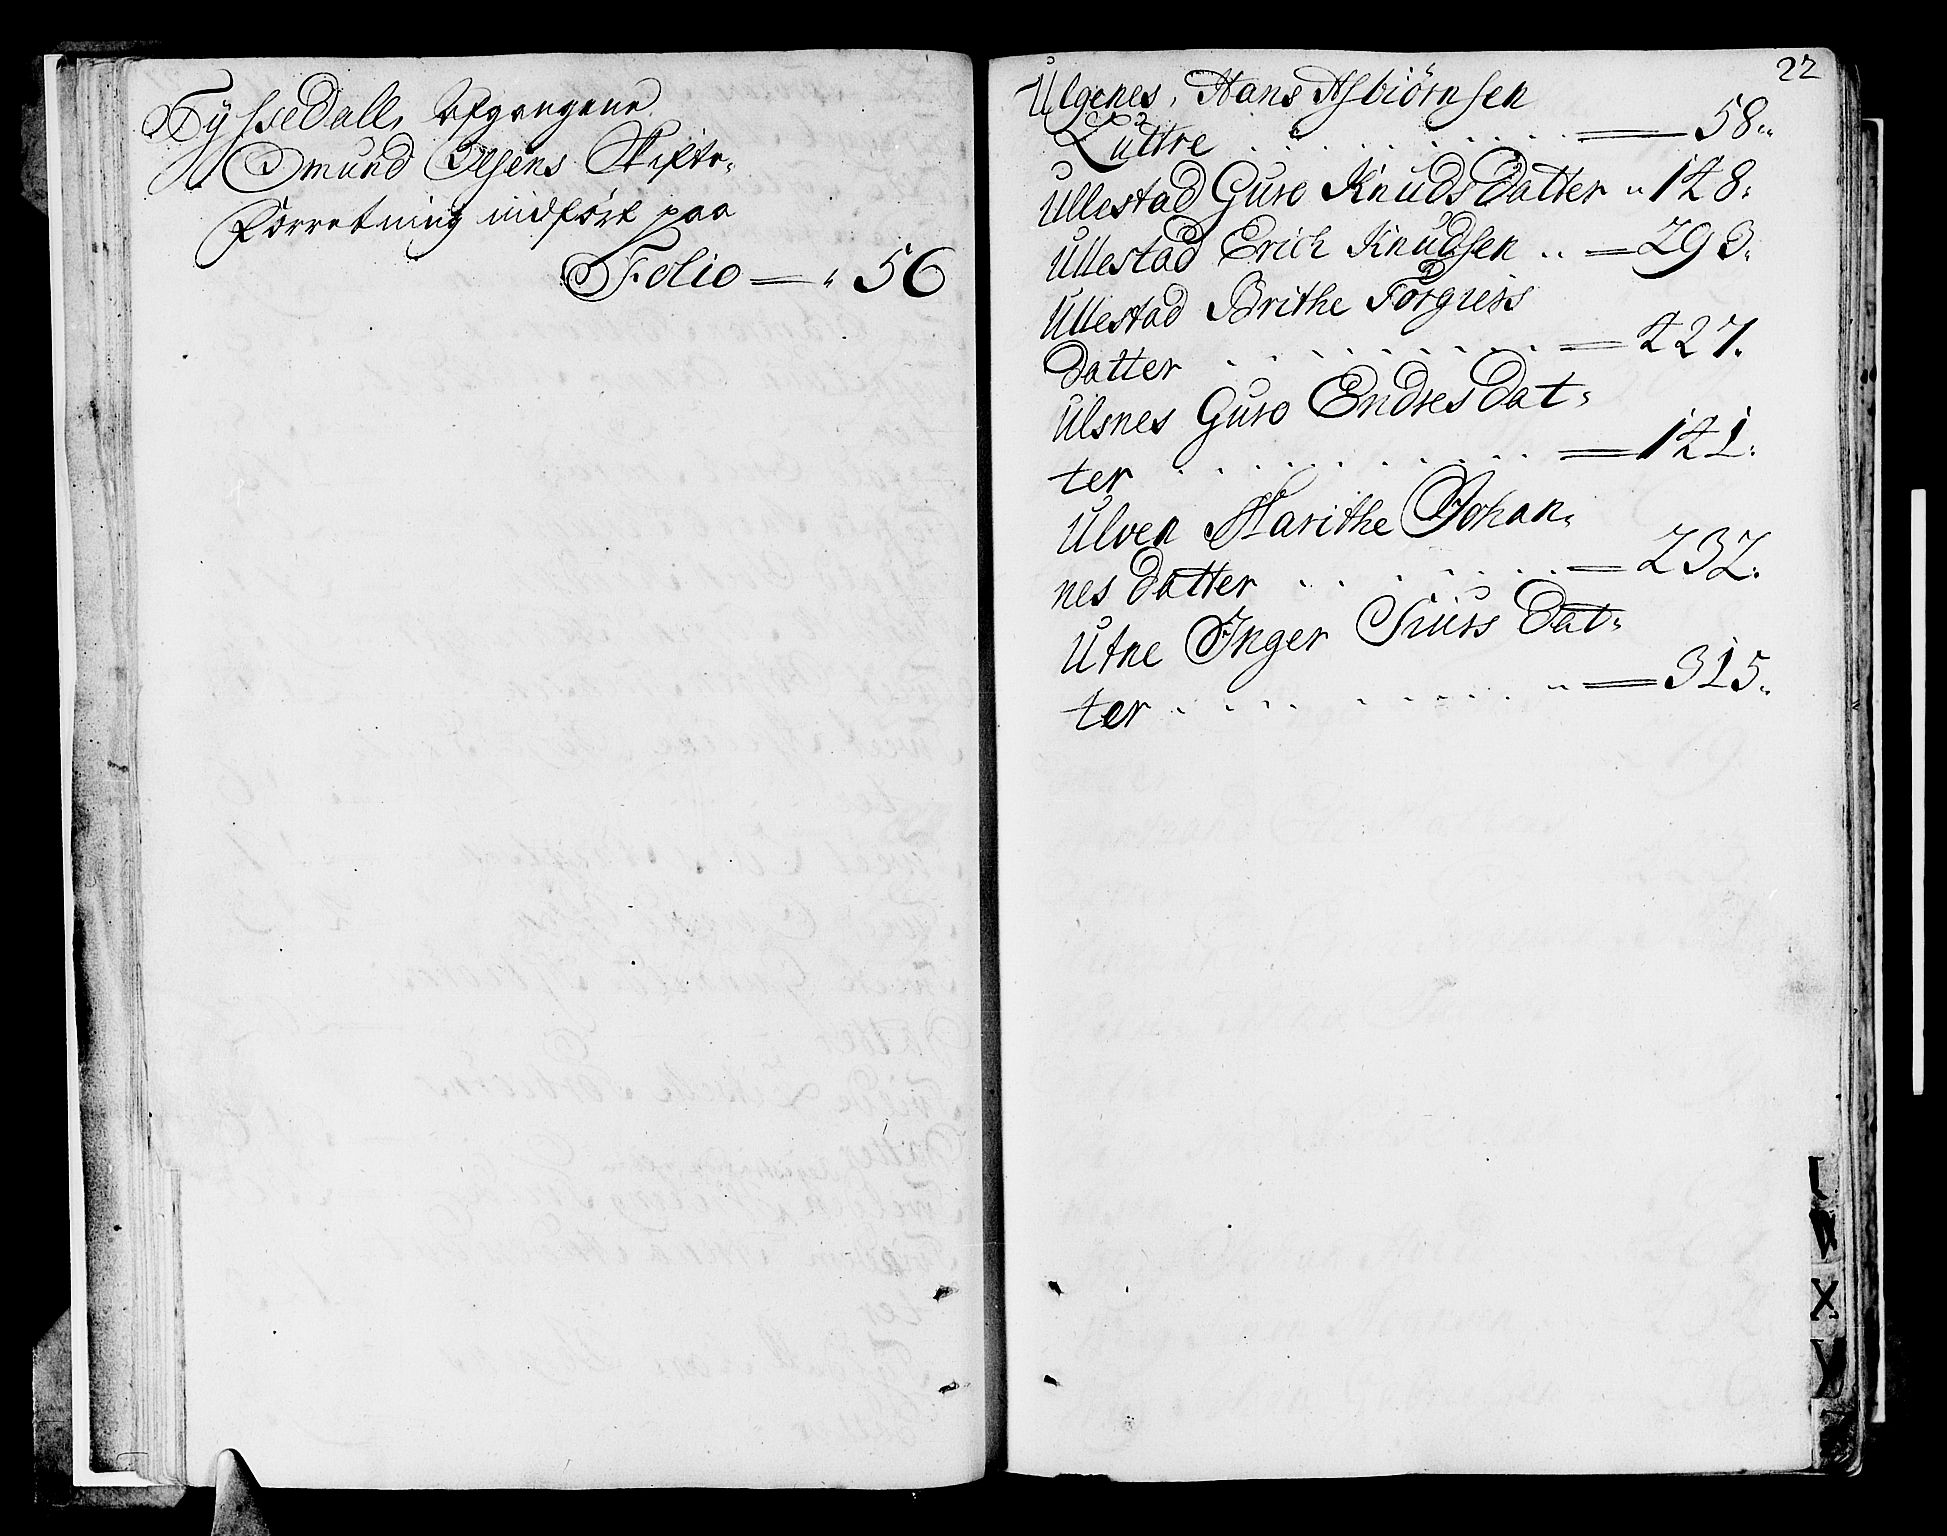 Tyssedall, Afgangene
Omund Olsens Skifte-
Forretning indført paa
Folio = " 56
22
Ulgenes, Hans Asbiörnsen
Luttre . . . . . . . . = 58.
Ullestad Guro Knudsdatter " 148.
Ullestad Erich Knudsen .. = 293.
Ullestad Brithe Torgiers
datter . . . . . . . . = 427.
Ulsnes Guro Endresdat-
ter . . . . . . . . . = 141.
Ulven Marithe Johan-
nes datter . . . . . . = 232.
Utne Inger Siurs Dat-
ter . . . . . . . . . = 315.
W
X
Y
Z